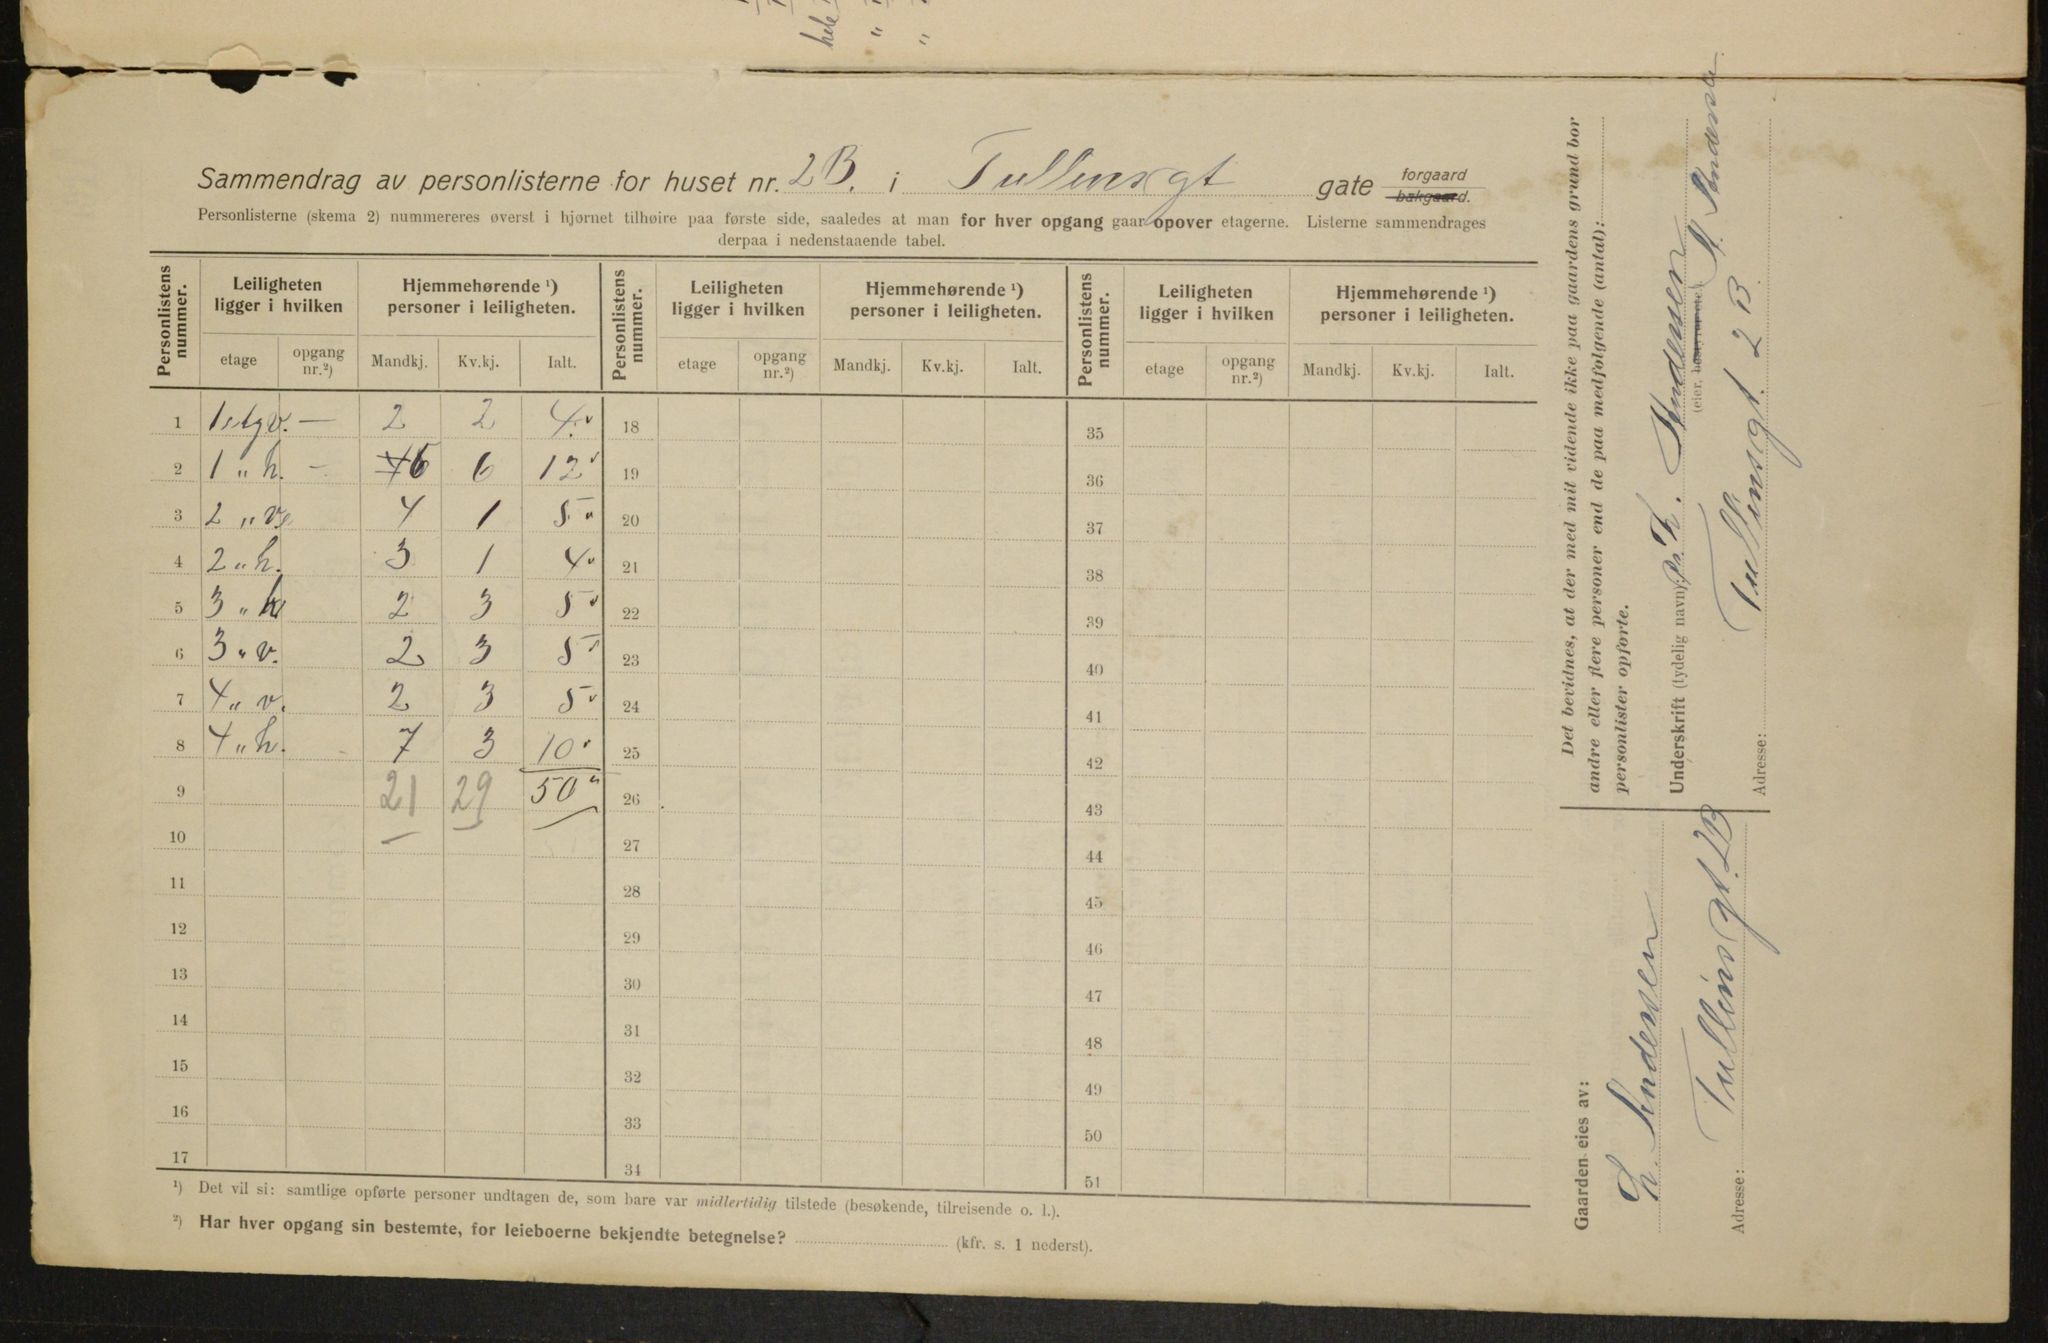 hele
Sammendrag av personlisterne for huset nr. 2B. i Tullinsgt gate forgaard bakgaard.
Personlisterne (skema 2) nummereres øverst i hjørnet tilhøire paa første side, saaledes at man for hver opgang gaar opover etagerne. Listerne sammendrages
derpaa i nedenstaaende tabel.
Personlistens nummer. Leiligheten ligger i hvilken Hjemmehørende ¹) personer i leiligheten. Personlistens nummer. Leiligheten ligger i hvilken Hjemmehørende ¹) personer i leiligheten. Personlistens nummer. Leiligheten ligger i hvilken Hjemmehørende ¹) personer i leiligheten.
etage opgang nr.²) Mandkj. Kv.kj. Ialt. etage opgang nr.²) Mandkj. Kv.kj. Ialt. etage opgang nr.²) Mandkj. Kv.kj. Ialt.
1 1 etg v. — 2 2 4 18 35
2 1 " h. — 6 6 12 19 36
3 2 " v. 4 1 5 20 37
4 2 " h. 3 1 4 21 38
5 3 " h 2 3 5 22 39
6 3 " v. 2 3 5 23 40
7 4 " v. 2 3 5 24 41
8 4 " h. 7 3 10 25 42
9 21 29 50 26 43
10 27 44
11 28 45
12 29 46
13 30 47
14 31 48
15 32 49
16 33 50
17 34 51
¹) Det vil si: samtlige opførte personer undtagen de, som bare var midlertidig tilstede (besøkende, tilreisende o. l.).
²) Har hver opgang sin bestemte, for leieboerne bekjendte betegnelse? (kfr. s. 1 nederst).
Det bevidnes, at der med mit vidende ikke paa gaardens grund bor
andre eller flere personer end de paa medfølgende (antal):
personlister opførte.
Underskrift (tydelig navn): Th. Andersen
(eier, bestyrer)
Adresse: Tullinsgt. 2 B.
Gaarden eies av:
Th. Andersen
Adresse: Tullinsgt. 2B